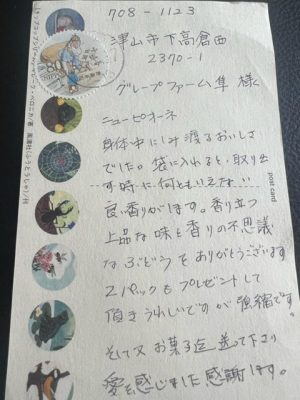 708-1123
津山市下高倉西
2370-1
グレープファーム隼 様
ニューピオーネ
身体中にしみ渡るおいしさ
でした。袋に入れると、取り出
す時に何ともいえない
良い香りがします。香り立つ
上品な味と香りの不思議
なぶどうをありがとうございます
2パックもプレゼントして
頂きうれしいですのが 恐縮です。
そして又 お菓子迄 送って下さり
愛を感じました 感謝します。
post card